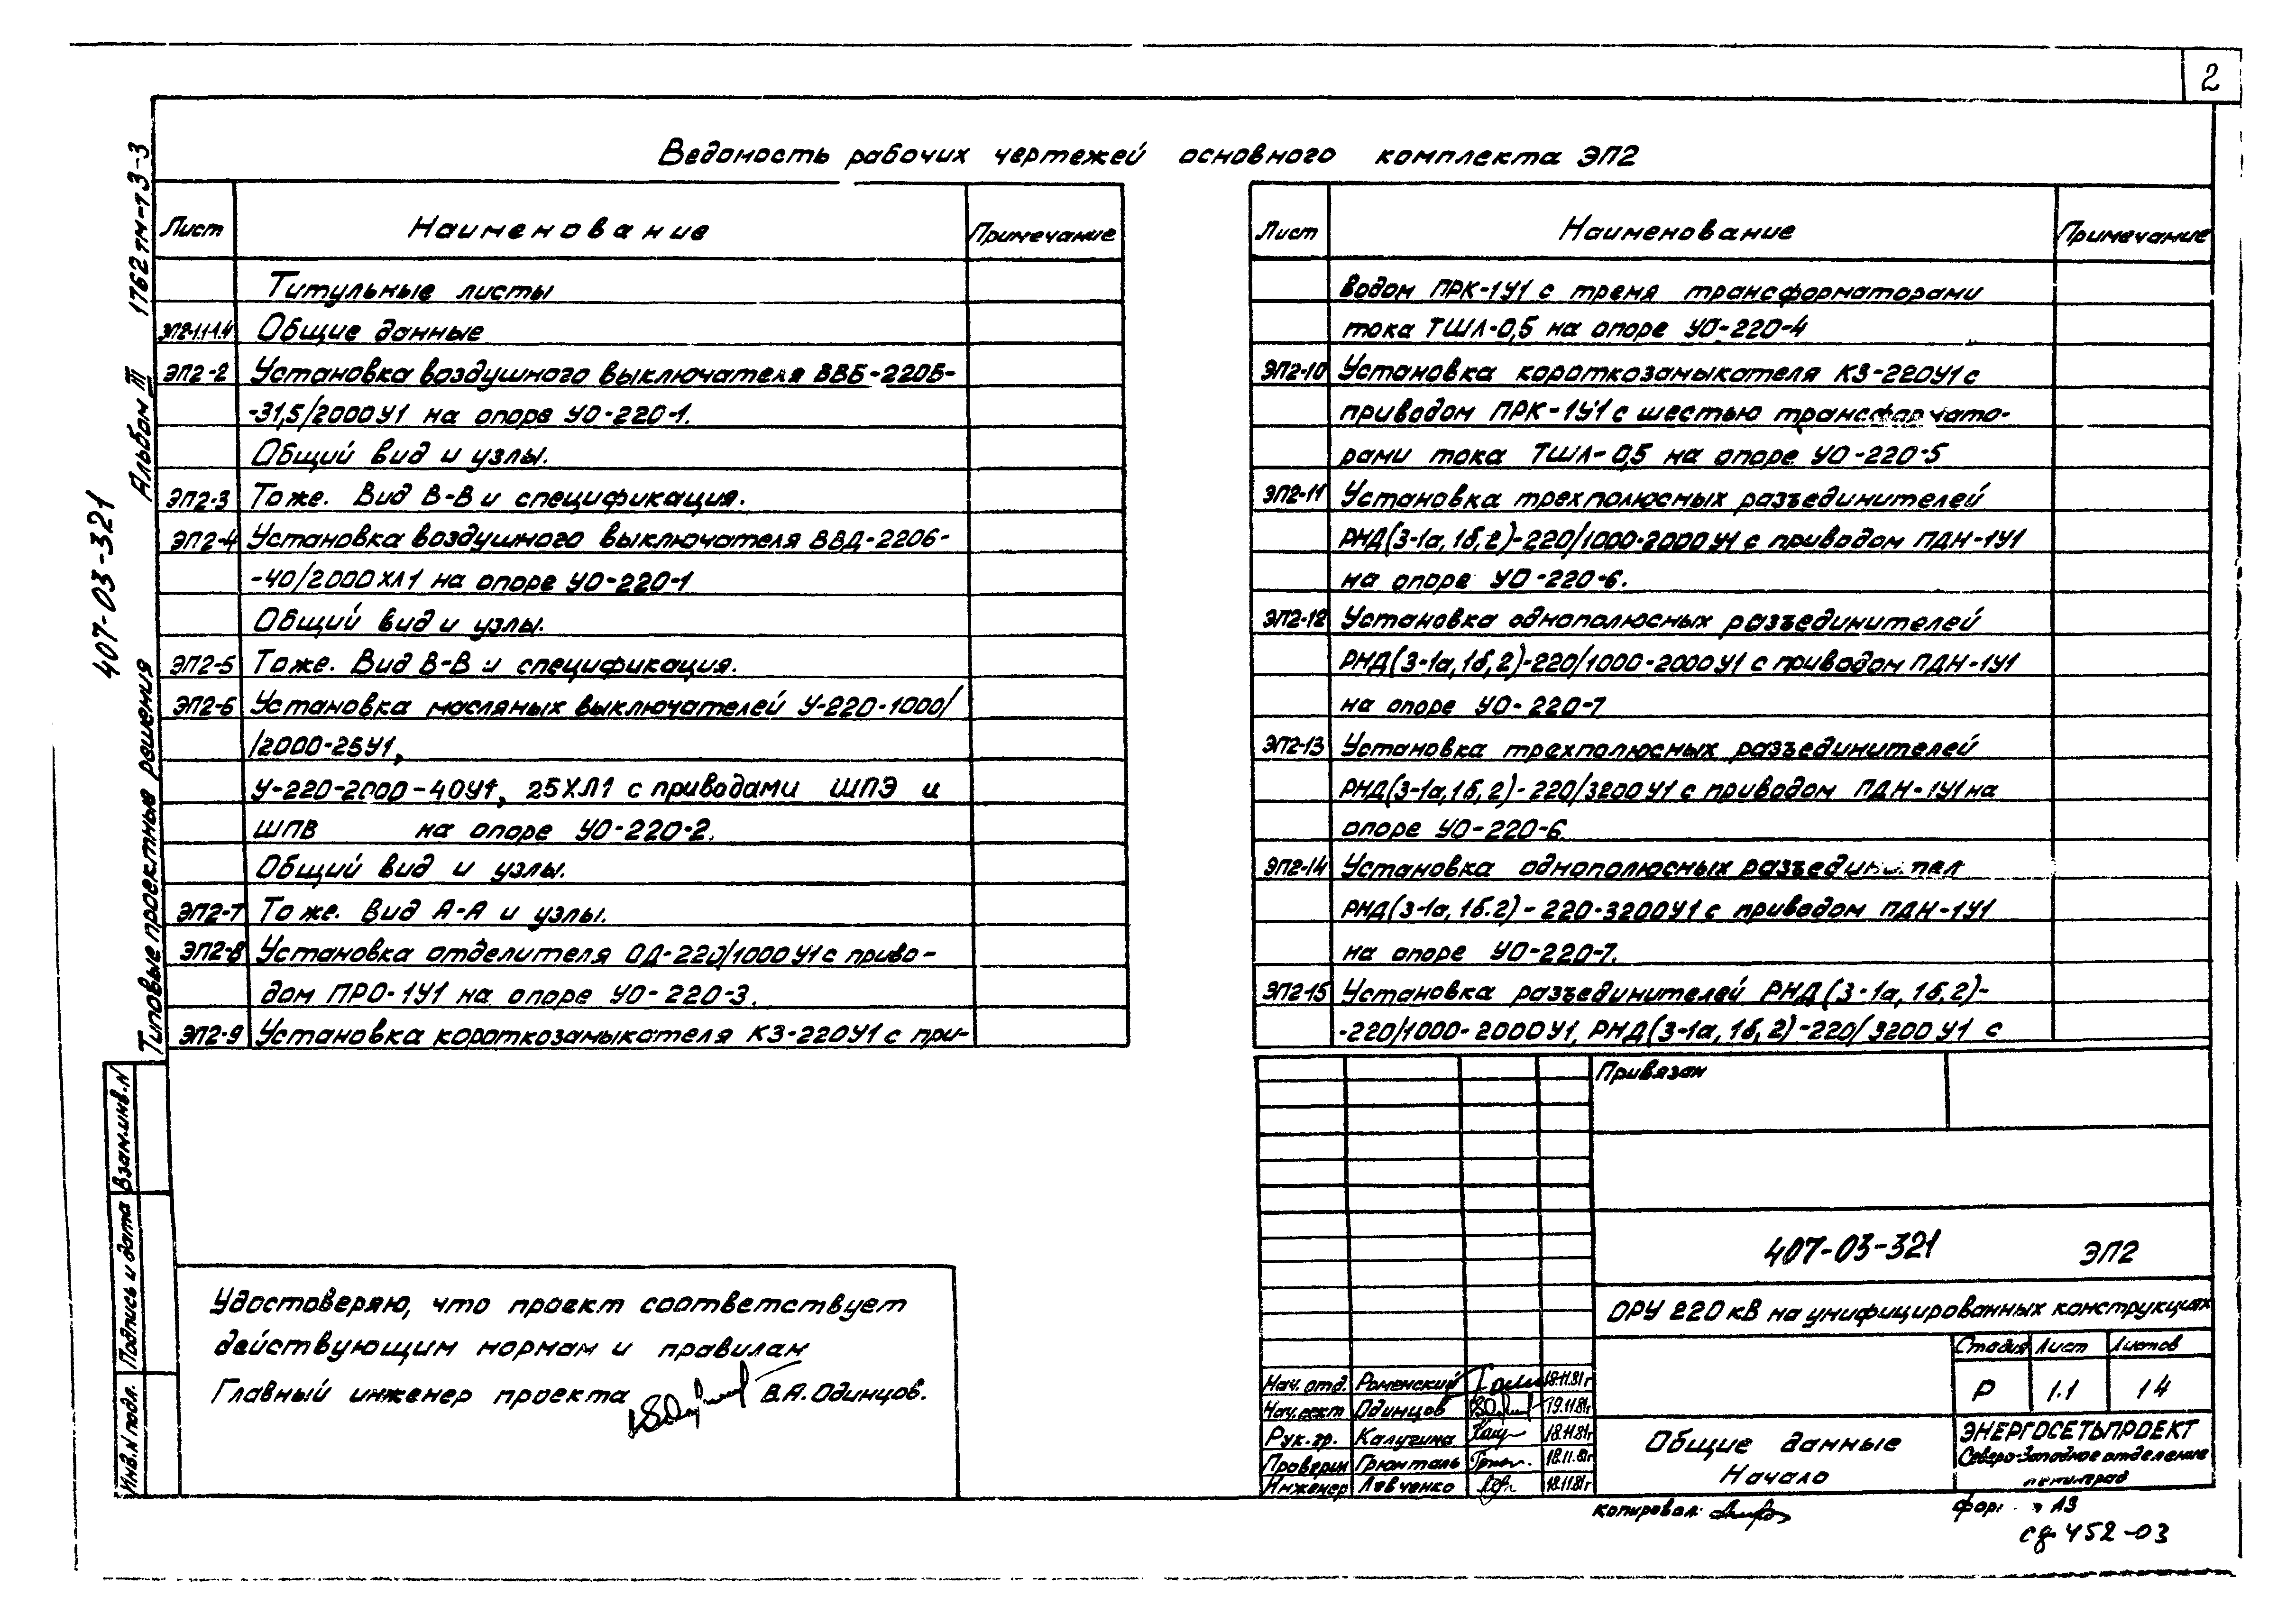 2
Ведомость рабочих чертежей основного комплекта ЭП2
Лист Наименование Примечание
Титульные листы
ЭП2-1.1-1.4 Общие данные
ЭП2-2 Установка воздушного выключателя ВВБ-220Б-
-31,5/2000У1 на опоре УО-220-1.
Общий вид и узлы.
ЭП2-3 То же. Вид В-В и спецификация.
ЭП2-4 Установка воздушного выключателя ВВД-220Б-
-40/2000ХЛ1 на опоре УО-220-1
Общий вид и узлы.
ЭП2-5 То же. Вид В-В и спецификация.
ЭП2-6 Установка масляных выключателей У-220-1000/
/2000-25У1,
У-220-2000-40У1, 25ХЛ1 с приводами ШПЭ и
ШПВ на опоре УО-220-2.
Общий вид и узлы.
ЭП2-7 То же. Вид А-А и узлы.
ЭП2-8 Установка отделителя ОД-220/1000У1 с приво-
дом ПРО-1У1 на опоре УО-220-3.
ЭП2-9 Установка короткозамыкателя КЗ-220У1 с при-
Лист Наименование Примечание
водом ПРК-1У1 с тремя трансформаторами
тока ТШЛ-0,5 на опоре УО-220-4
ЭП2-10 Установка короткозамыкателя КЗ-220У1 с
приводом ПРК-1У1 с шестью трансформато-
рами тока ТШЛ-0,5 на опоре УО-220-5
ЭП2-11 Установка трехполюсных разъединителей
РНД(3-1а, 1б, 2)-220/1000-2000У1 с приводом ПДН-1У1
на опоре УО-220-6.
ЭП2-12 Установка однополюсных разъединителей
РНД(3-1а, 1б, 2)-220/1000-2000У1 с приводом ПДН-1У1
на опоре УО-220-7
ЭП2-13 Установка трехполюсных разъединителей
РНД(3-1а, 1б, 2)-220/3200У1 с приводом ПДН-1У1 на
опоре УО-220-6.
ЭП2-14 Установка однополюсных разъединител
РНД(3-1а, 1б.2)-220-3200У1 с приводом ПДН-1У1
на опоре УО-220-7.
ЭП2-15 Установка разъединителей РНД(3-1а, 1б, 2)-
-220/1000-2000У1, РНД(3-1а, 1б, 2)-220/3200У1 с
407-03-321
Типовые проектные решения Альбом III 1762тм-т3-3
Взам.инв.N
Подпись и дата
Инв.N подл.
Удостоверяю, что проект соответствует
действующим нормам и правилам
Главный инженер проекта В.А.Одинцов.
Привязан
407-03-321 ЭП2
ОРУ 220 кВ на унифицированных конструкциях
Стадия Лист Листов
Р 1.1 14
Нач. отд. Роменский 18.11.81г
Нач. сект Одинцов 19.11.81г
Рук. гр. Калугина 18.11.81г
Проверил Грюнталь 18.11.81г
Инженер Левченко 18.11.81г
Общие данные
Начало
ЭНЕРГОСЕТЬПРОЕКТ
Северо-Западное отделение
Ленинград
копировал:
А3
сф 452-03